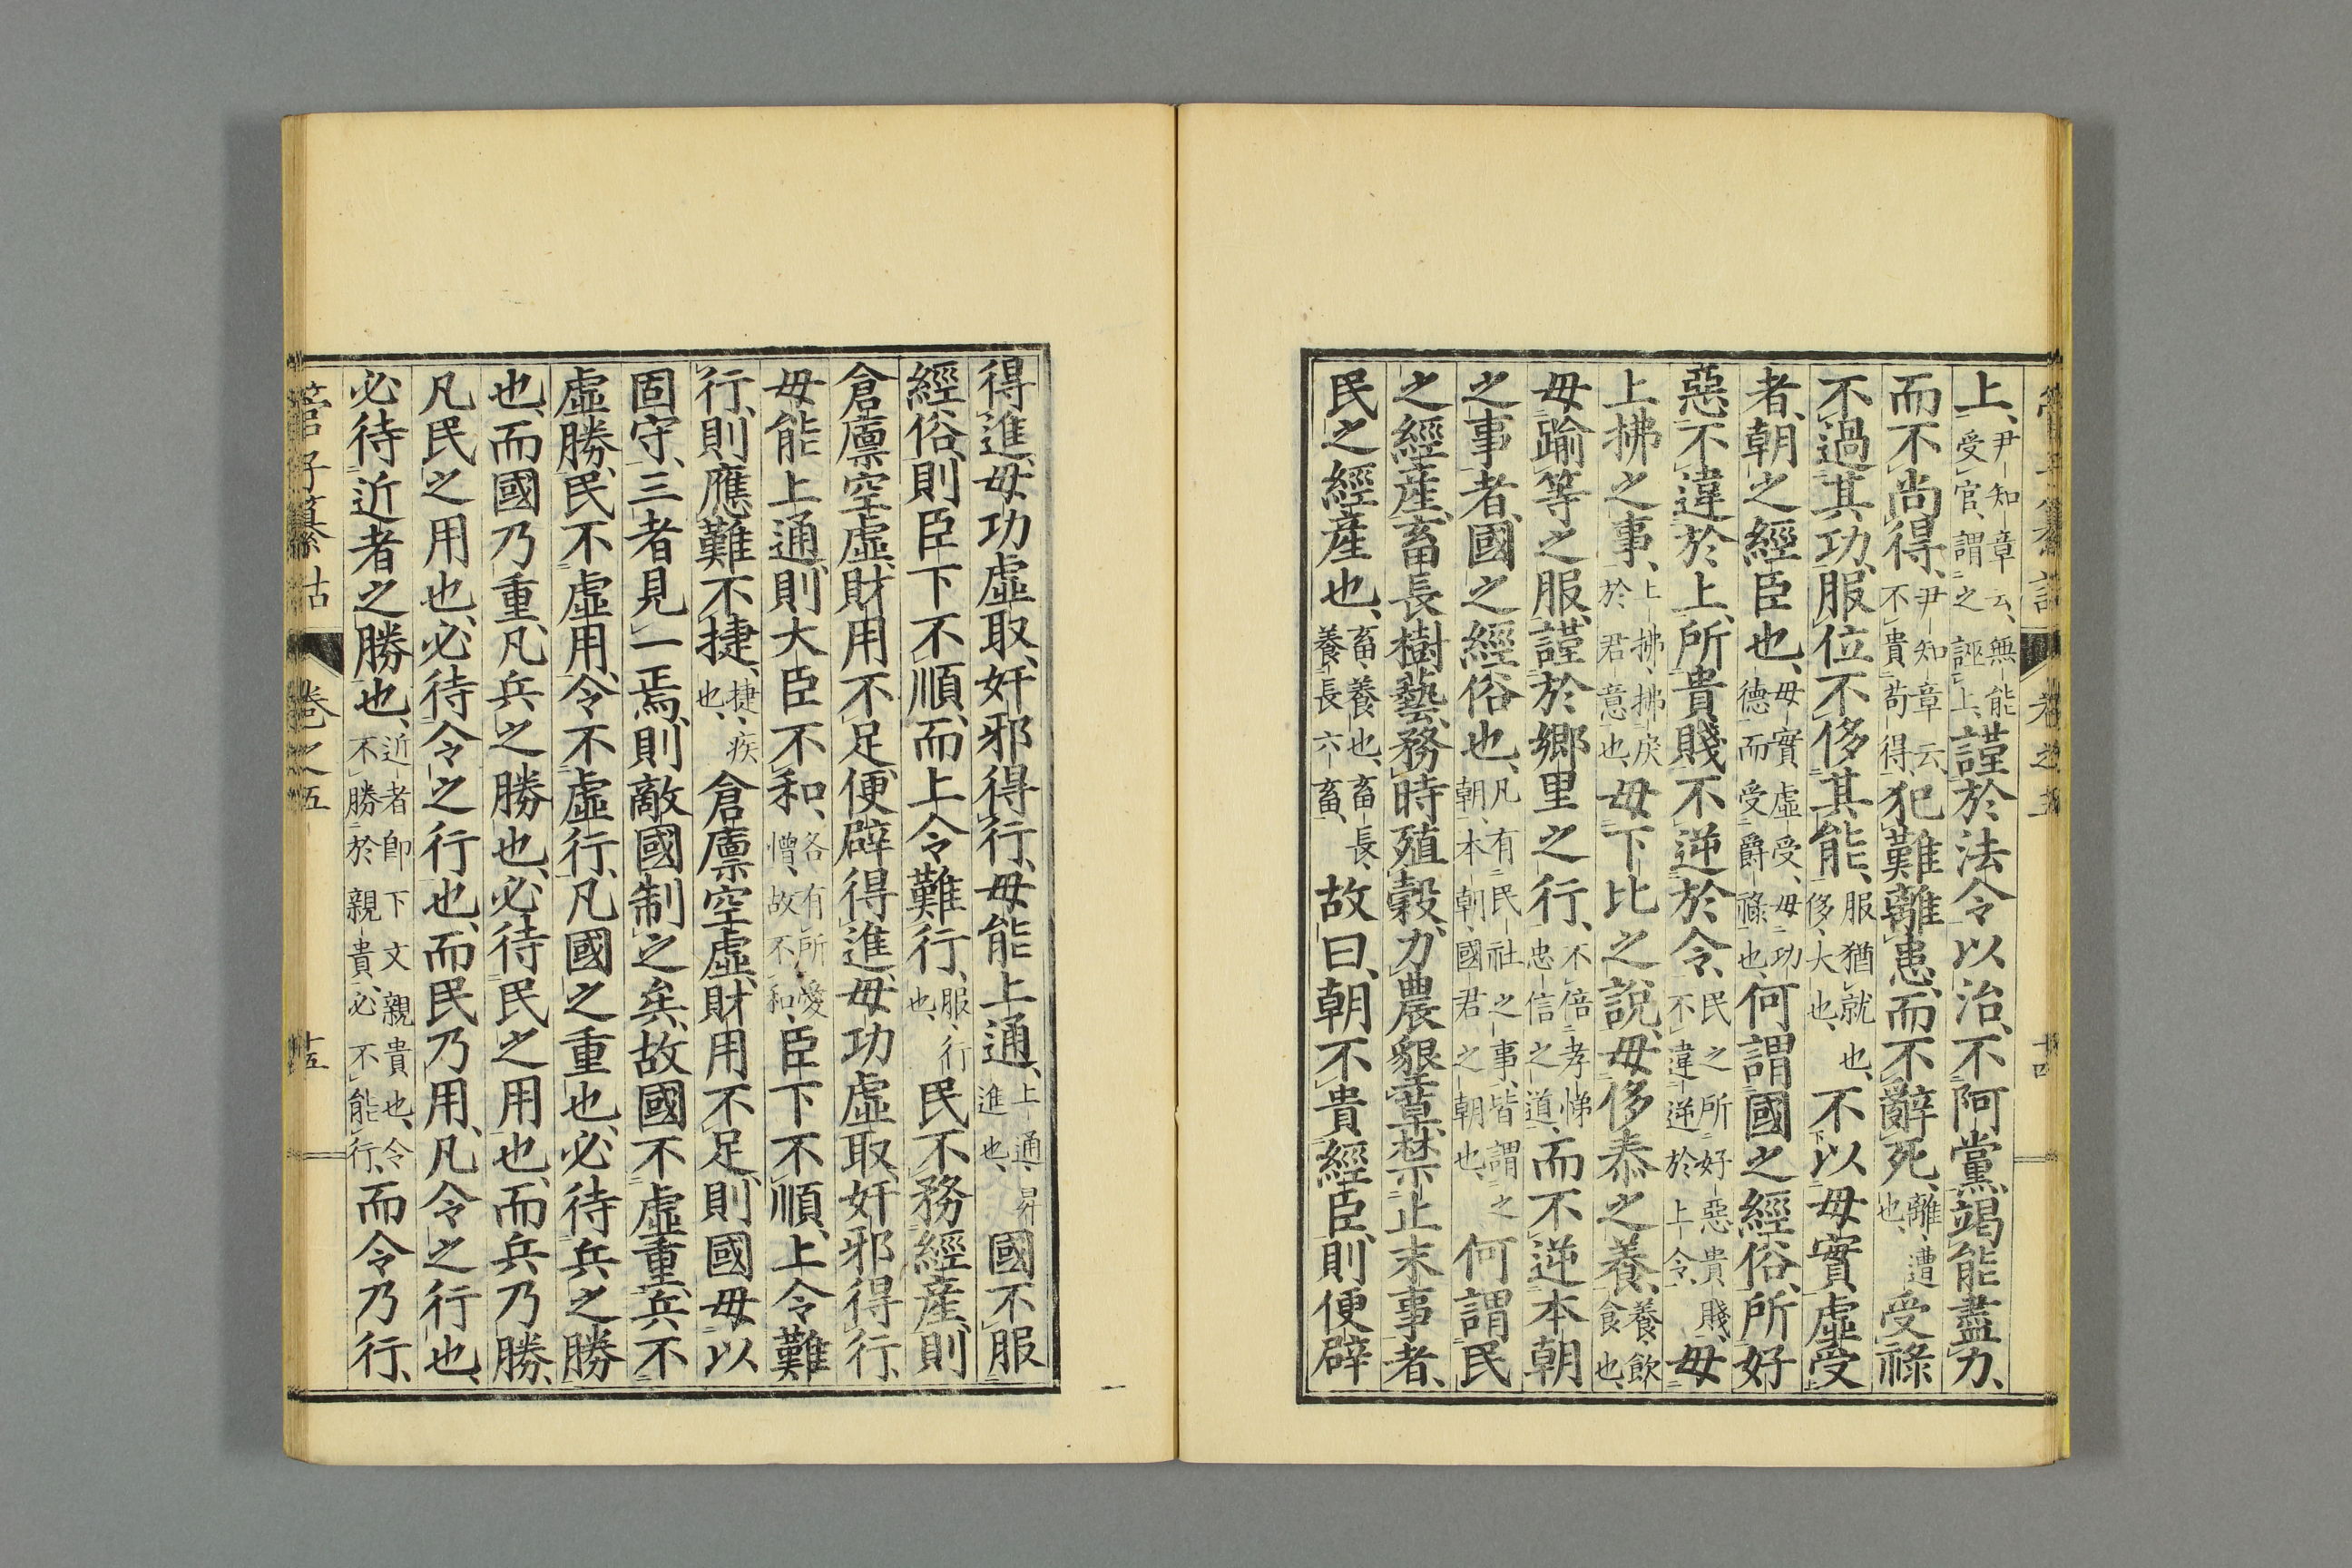 上、尹知章云、無能受官、謂之誣上、謹於法令以治、不阿黨、竭能盡力、
而不尚得、尹知章云、不貴苟得、犯難離患、而不辭死、離、遭也、受祿
不過其功、服位不侈其能、服猶就也、侈、大也、不以毋實虛受
者、朝之經臣也、毋實虛受、毋功德而受爵祿也、何謂國之經俗、所好
惡不違於上、所貴賤不逆於令、民之所好惡貴賤、不違逆於上令、毋
上拂之事、上拂、拂戾於君意也、毋下比之說、毋侈泰之養、養、飲食也、
毋踰等之服、謹於鄉里之行、不倍孝悌忠信之道、而不逆本朝
之事者、國之經俗也、凡有民社之事、皆謂之朝、本朝、國君之朝也、何謂民
之經產、畜長樹藝、務時殖穀、力農墾草、禁止末事者、
民之經產也、畜、養也、畜長、養長六畜、故曰、朝不貴經臣、則便辟
得進、毋功虛取、奸邪得行、毋能上通、上通、昇進也、國不服
經俗、則臣下不順、而上令難行、服、行也、民不務經產、則
倉廩空虛、財用不足、便辟得進、毋功虛取、奸邪得行、
毋能上通、則大臣不和、各有所愛憎、故不和、臣下不順、上令難
行、則應難不捷、捷、疾也、倉廩空虛、財用不足、則國毋以
固守、三者見一焉、則敵國制之矣、故國不虛重、兵不
虛勝、民不虛用、令不虛行、凡國之重也、必待兵之勝
也、而國乃重、凡兵之勝也、必待民之用也、而兵乃勝、
凡民之用也、必待令之行也、而民乃用、凡令之行也、
必待近者之勝也、近者卽下文親貴也、令不勝於親貴、必不能行、而令乃行、
管子纂詁 卷之五 十五